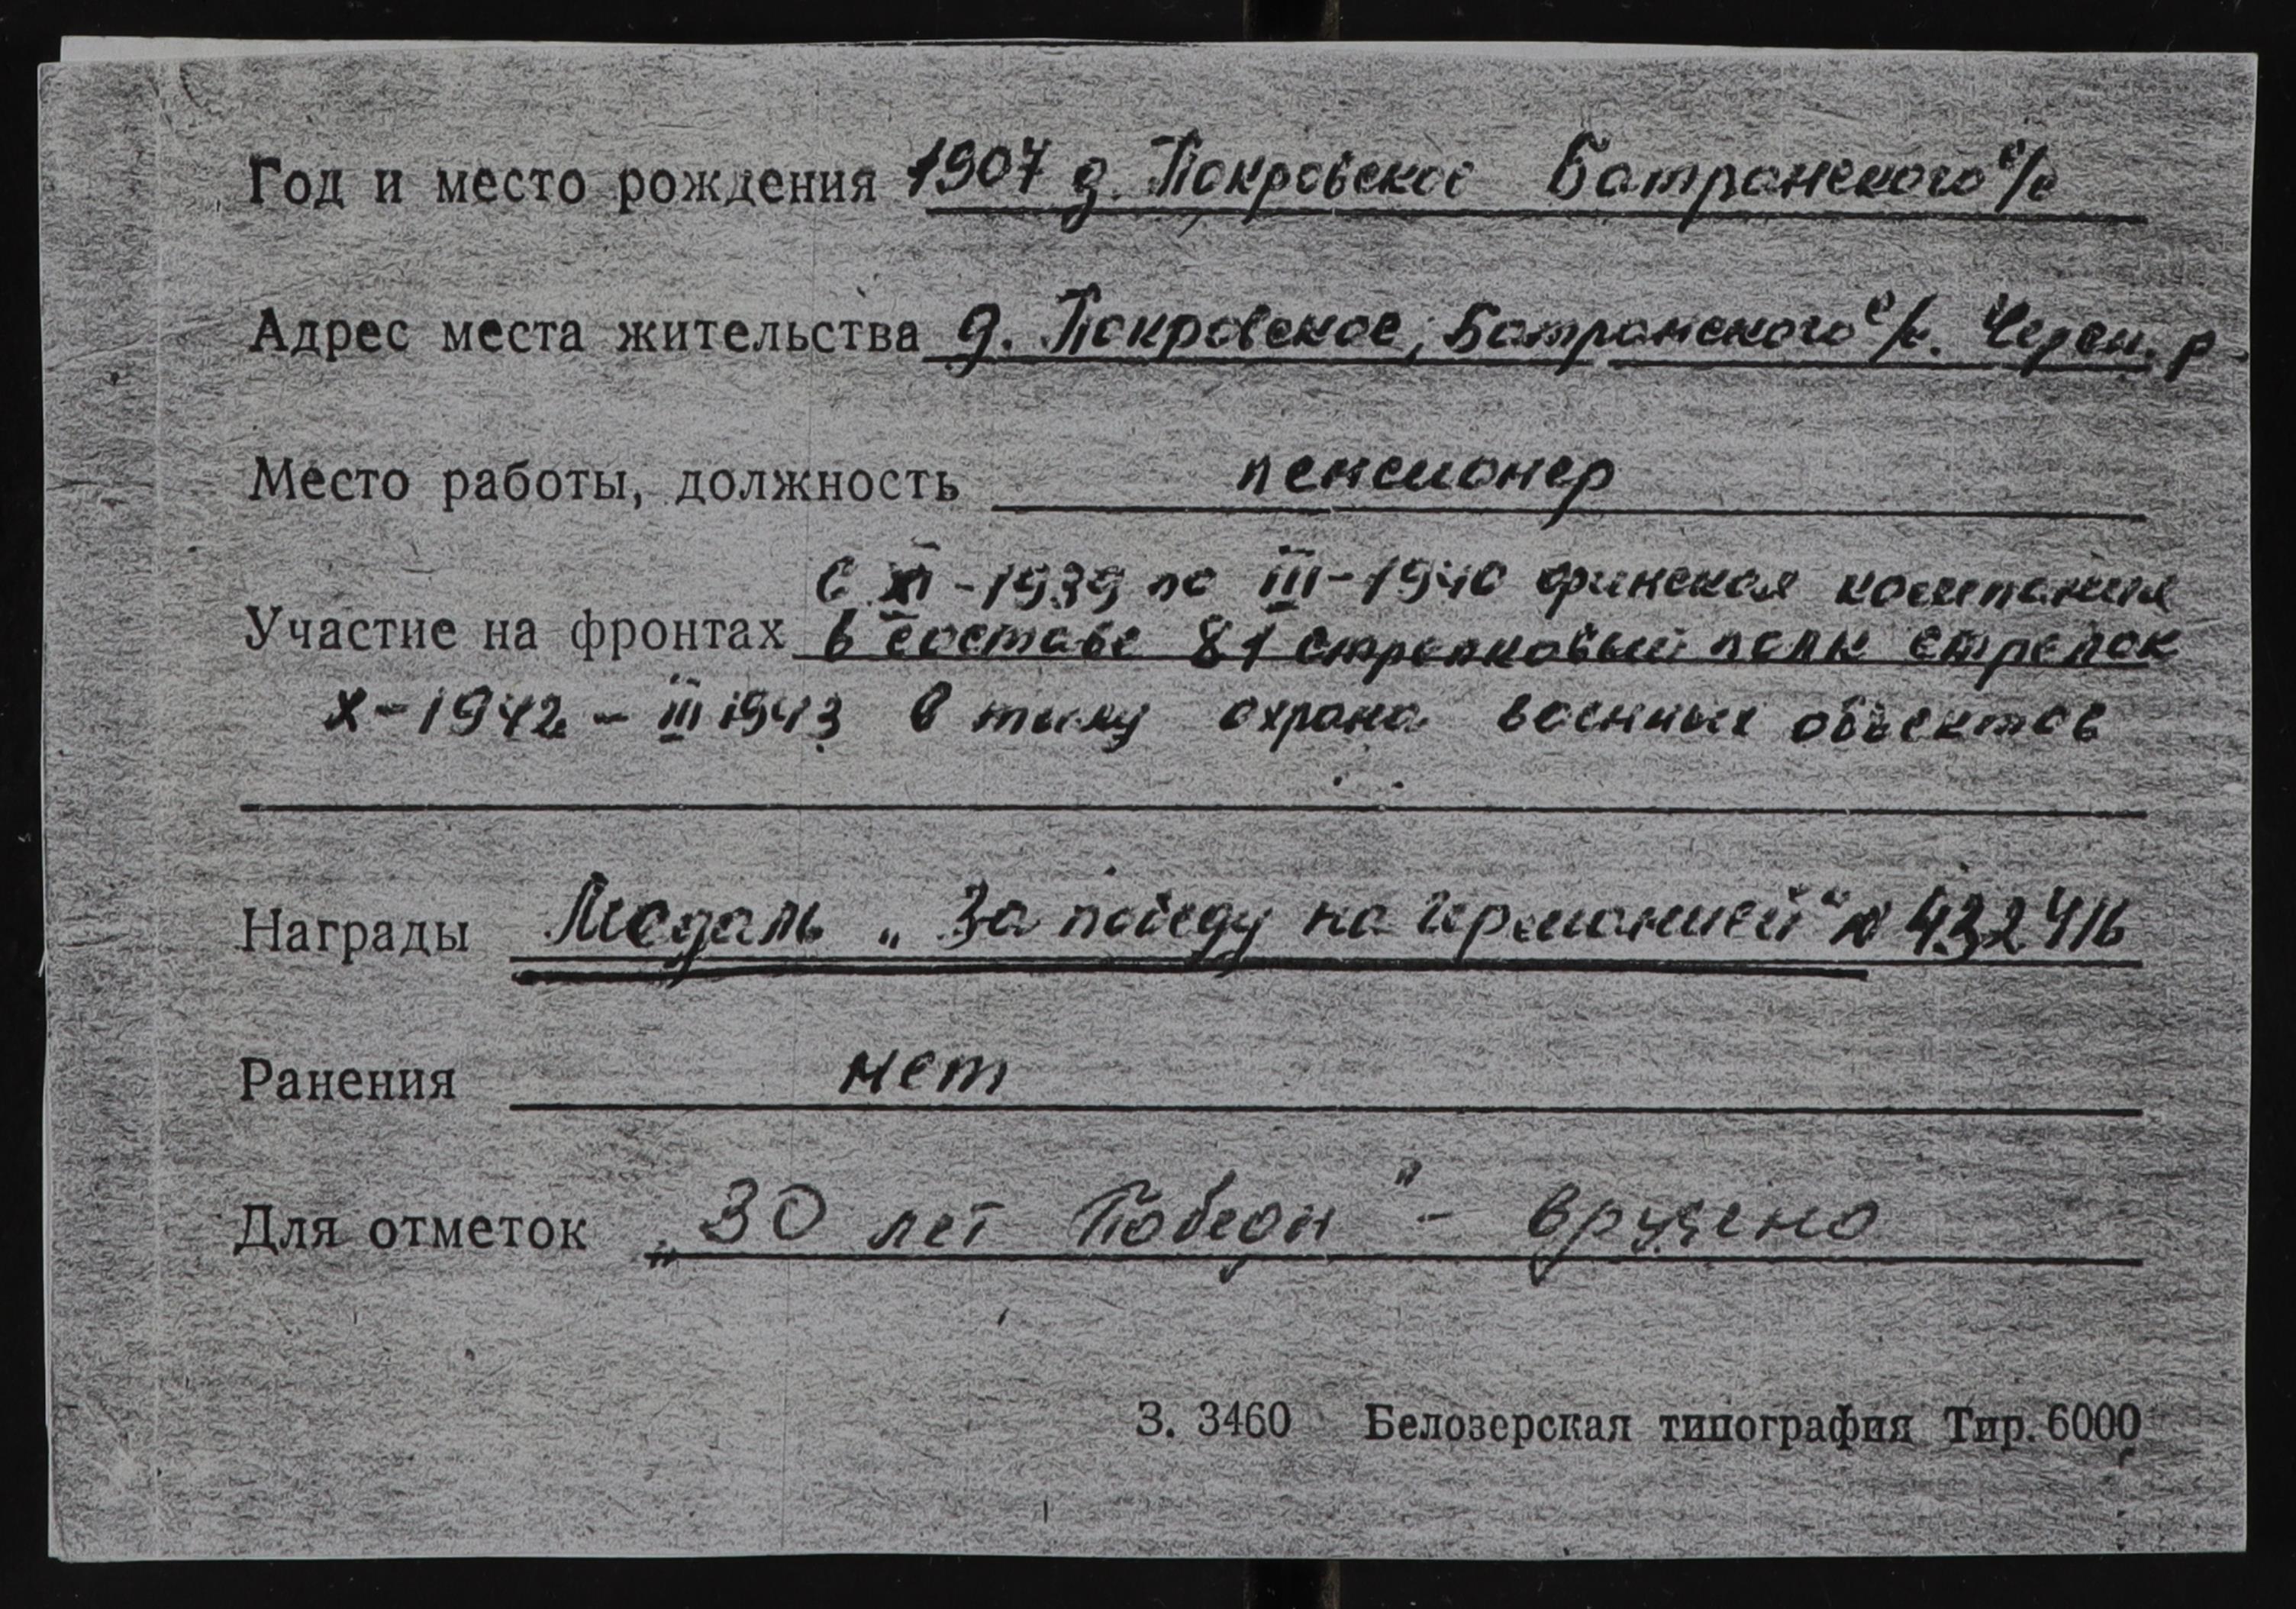 Год и место рождения 1907 д. Покровское Батранского с/с
Адрес места жительства д. Покровское, Батранского с/с. Череп. р
Место работы, должность пенсионер
с XI-1939 по III-1940 финская компания
Участие на фронтах в составе 81 стрелковый полк стрелок
X-1942 - III 1943 в тылу охрана военных объектов
Награды Медаль „За победу на Германией" № 432416
Ранения нет
Для отметок „30 лет Победы" - вручено
З. 3460 Белозерская типография Тир. 6000